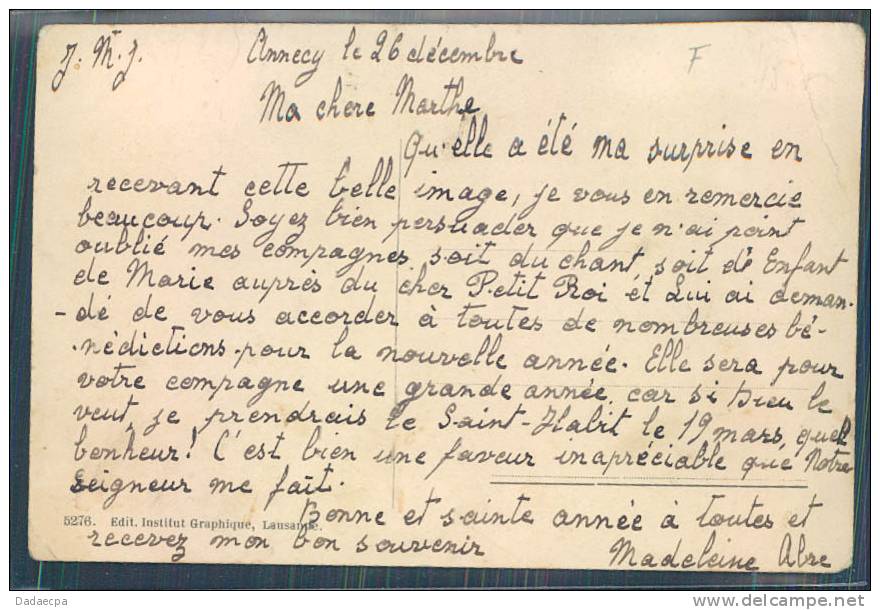 J. M. J.
Annecy le 26 décembre
F
Ma chere Marthe
Qu'elle a été ma surprise en
recevant cette belle image, je vous en remercie
beaucoup. Soyez bien persuader que je n'ai point
oublié mes compagnes soit du chant, soit d'Enfant
de Marie auprès du cher Petit Roi et Lui ai deman-
-dé de vous accorder à toutes de nombreuses bé-
-nédictions pour la nouvelle année. Elle sera pour
votre compagne une grande année, car si Dieu le
veut, je prendrais le Saint-Habit le 19 mars, quel
bonheur! C'est bien une faveur inapréciable que Notre
Seigneur me fait.
Bonne et sainte année à toutes et
5276. Edit. Institut Graphique, Lausanne.
recevez mon bon souvenir
Madeleine Abre
Dadaecpa
delcampe.net